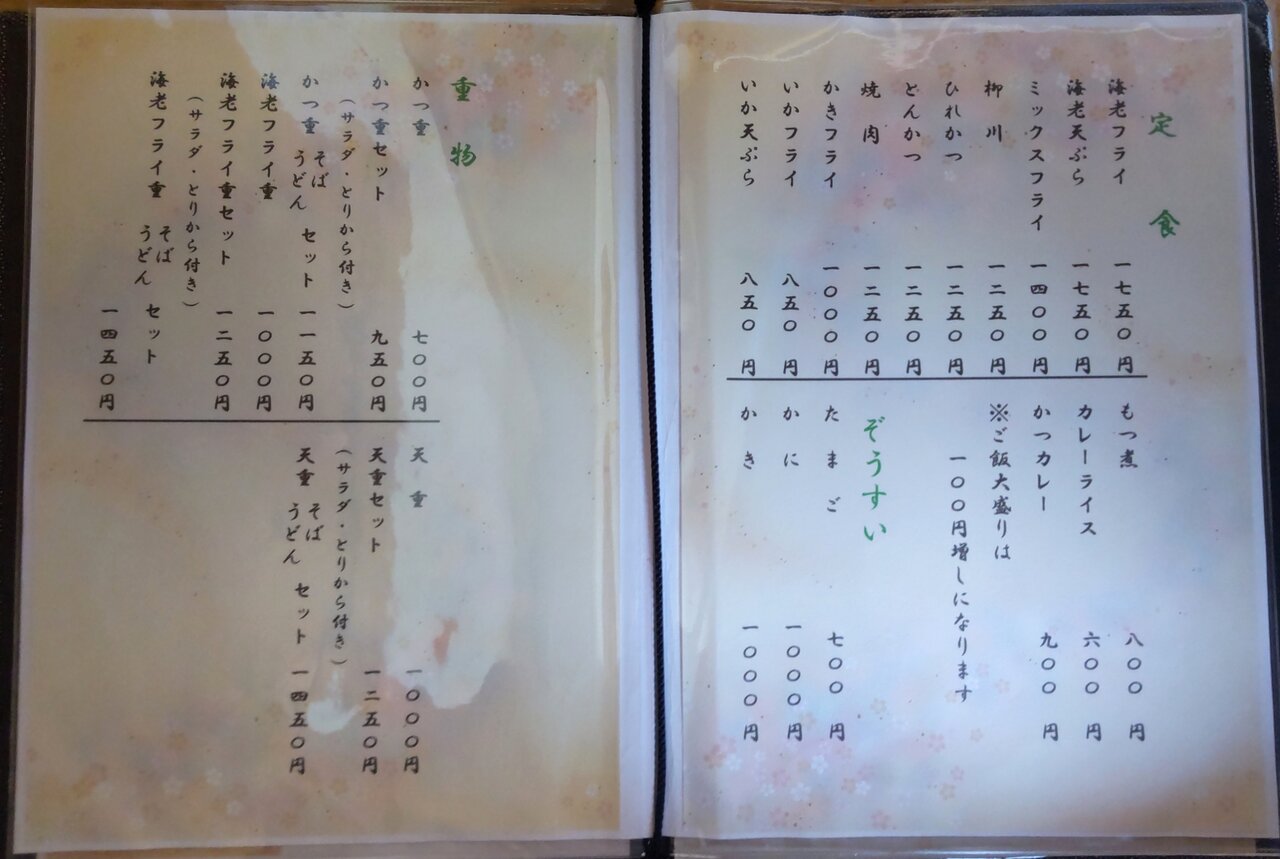 定食
海老フライ 一七五〇円
海老天ぷら 一七五〇円
ミックスフライ 一四〇〇円
柳川 一二五〇円
ひれかつ 一二五〇円
とんかつ 一二五〇円
焼肉 一二五〇円
かきフライ 一〇〇〇円
いかフライ 八五〇円
いか天ぷら 八五〇円
もつ煮 八〇〇円
カレーライス 六〇〇円
かつカレー 九〇〇円
※ご飯大盛りは
一〇〇円増しになります
ぞうすい
たまご 七〇〇円
かに 一〇〇〇円
かき 一〇〇〇円
重物
かつ重 七〇〇円
かつ重セット 九五〇円
（サラダ・とりから付き）
かつ重 そば うどん セット 一一五〇円
海老フライ重 一〇〇〇円
海老フライ重セット 一二五〇円
（サラダ・とりから付き）
海老フライ重 そば うどん セット
一四五〇円
天重 一〇〇〇円
天重セット 一二五〇円
（サラダ・とりから付き）
天重 そば うどん セット 一四五〇円